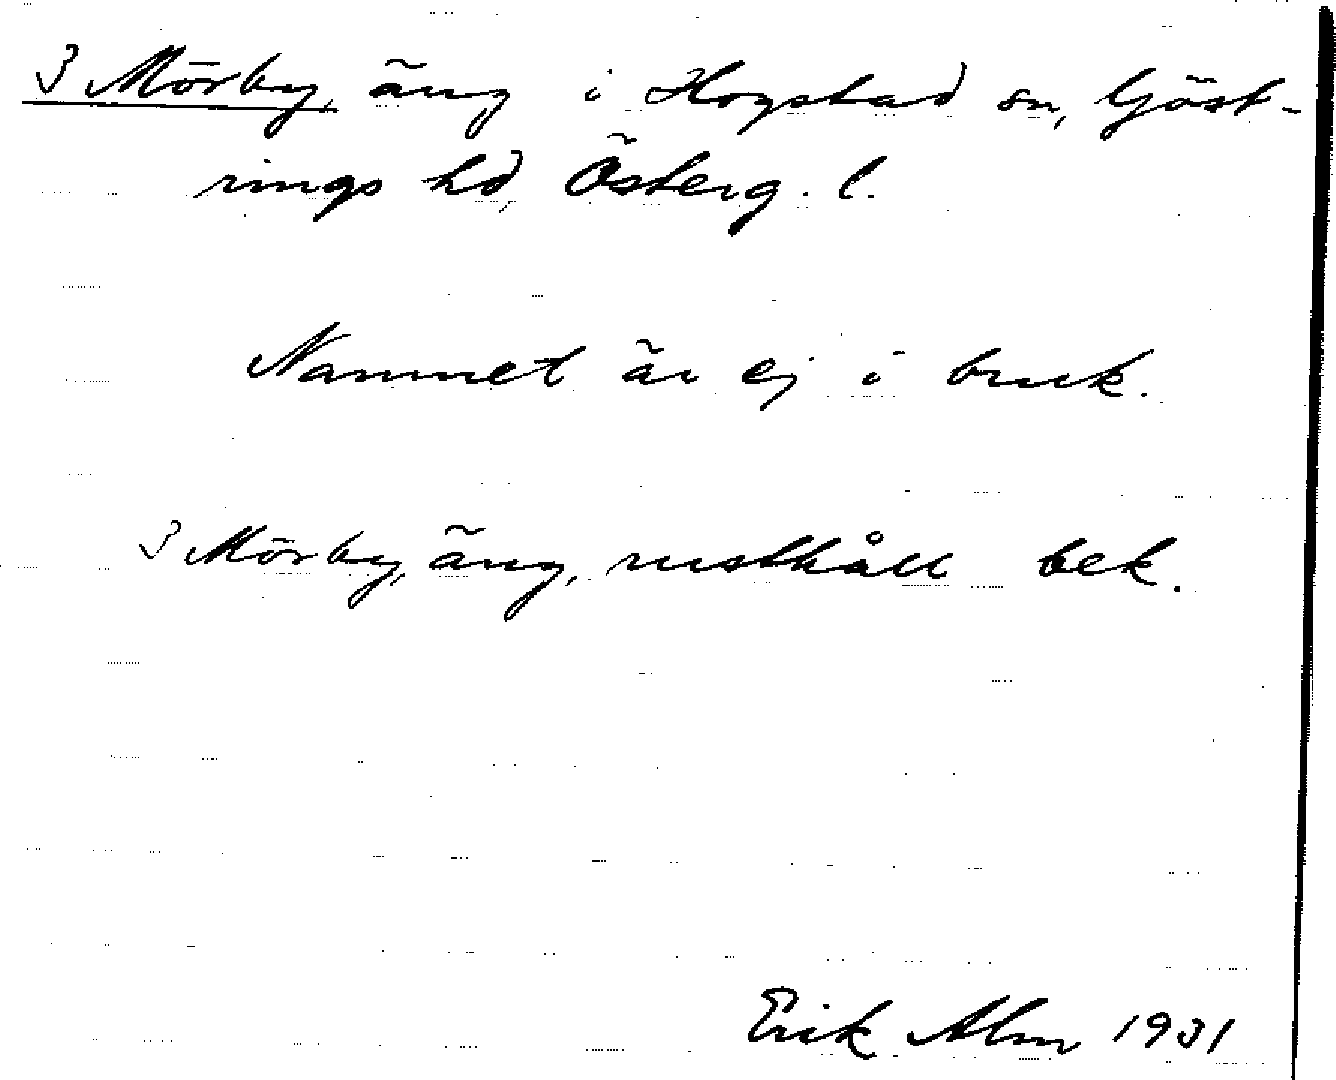 3 Mörby, äng i Hogstad sn, Göst-
rings hd, Österg. l.
Namnet är ej i bruk.
3 Mörby, äng, rusthåll bek.
Erik Alm 1931